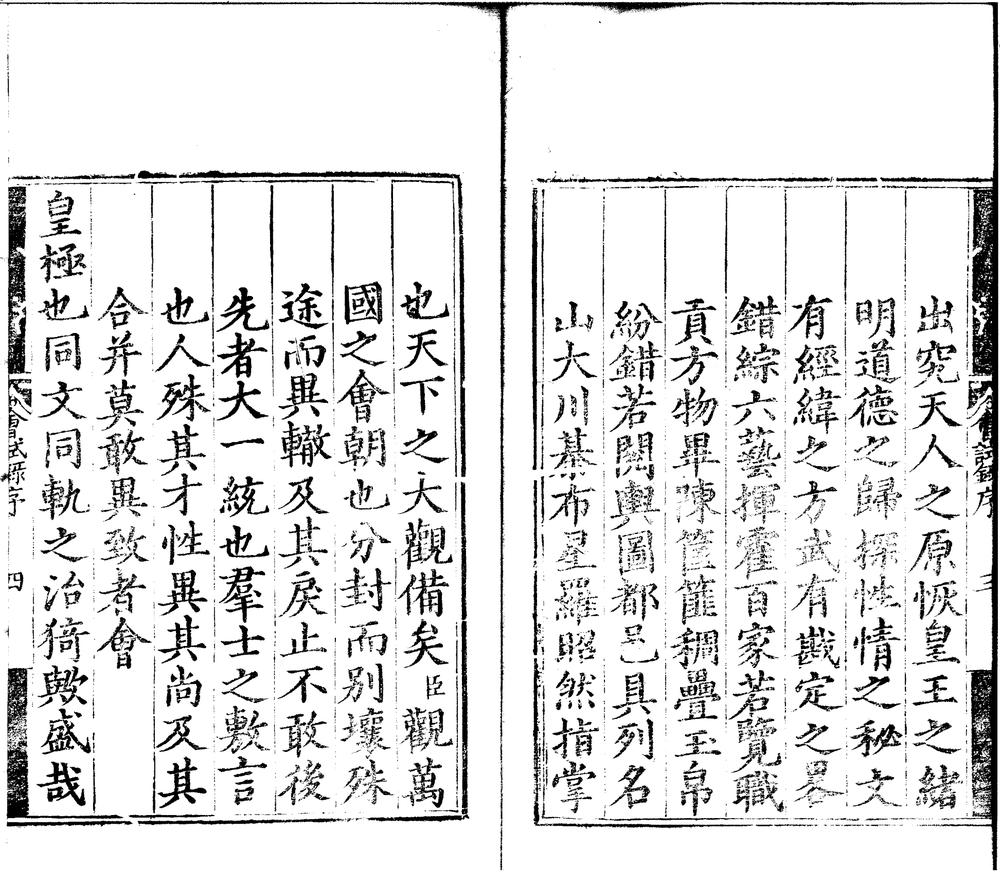 會試錄序 三
出究天人之原恢皇王之緒
明道德之歸探性情之秘文
有經緯之方武有戡定之畧
錯綜六藝揮霍百家若覽職
貢方物畢陳筐篚稠疊玉帛
紛錯若閱輿圖都邑具列名
山大川棊布星羅昭然指掌
也天下之大觀備矣臣觀萬
國之會朝也分封而別壤殊
途而異轍及其戾止不敢後
先者大一統也羣士之敷言
也人殊其才性異其尚及其
合并莫敢異致者會
皇極也同文同軌之治猗歟盛哉
會試錄序 四